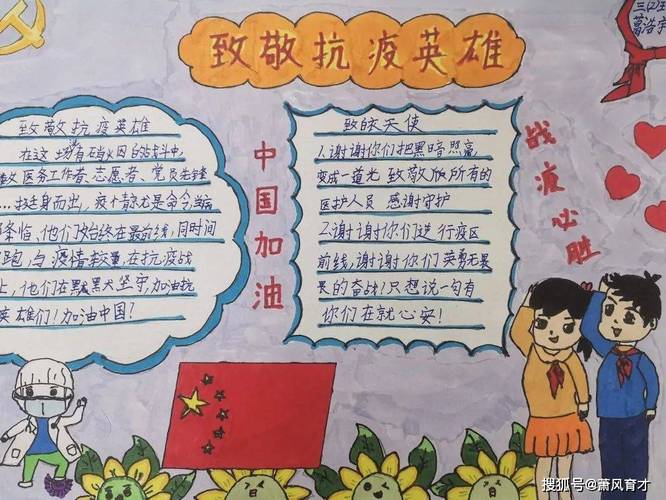 致敬抗疫英雄
三(2)班
葛浩宇
致敬抗疫英雄
在这场有硝火因的战斗中,
医务工作者、志愿者、党员先锋
…挺身而出,疫情就是命令,当
条临、他们始终在最前线,同时间
跑,与疫情较量、在抗疫战
上,他们在默默坚守,加油抗
英雄们!加油中国!
中国加油
致白衣天使
1.谢谢你们把黑暗照亮,
变成一道光 致敬所有的
医护人员 感谢守护
2.谢谢你们逆行疫区
前线,谢谢你们英勇无果
畏的奋战!只想说一句有
你们在就心安!
战疫必胜
搜狐号@萧风育才